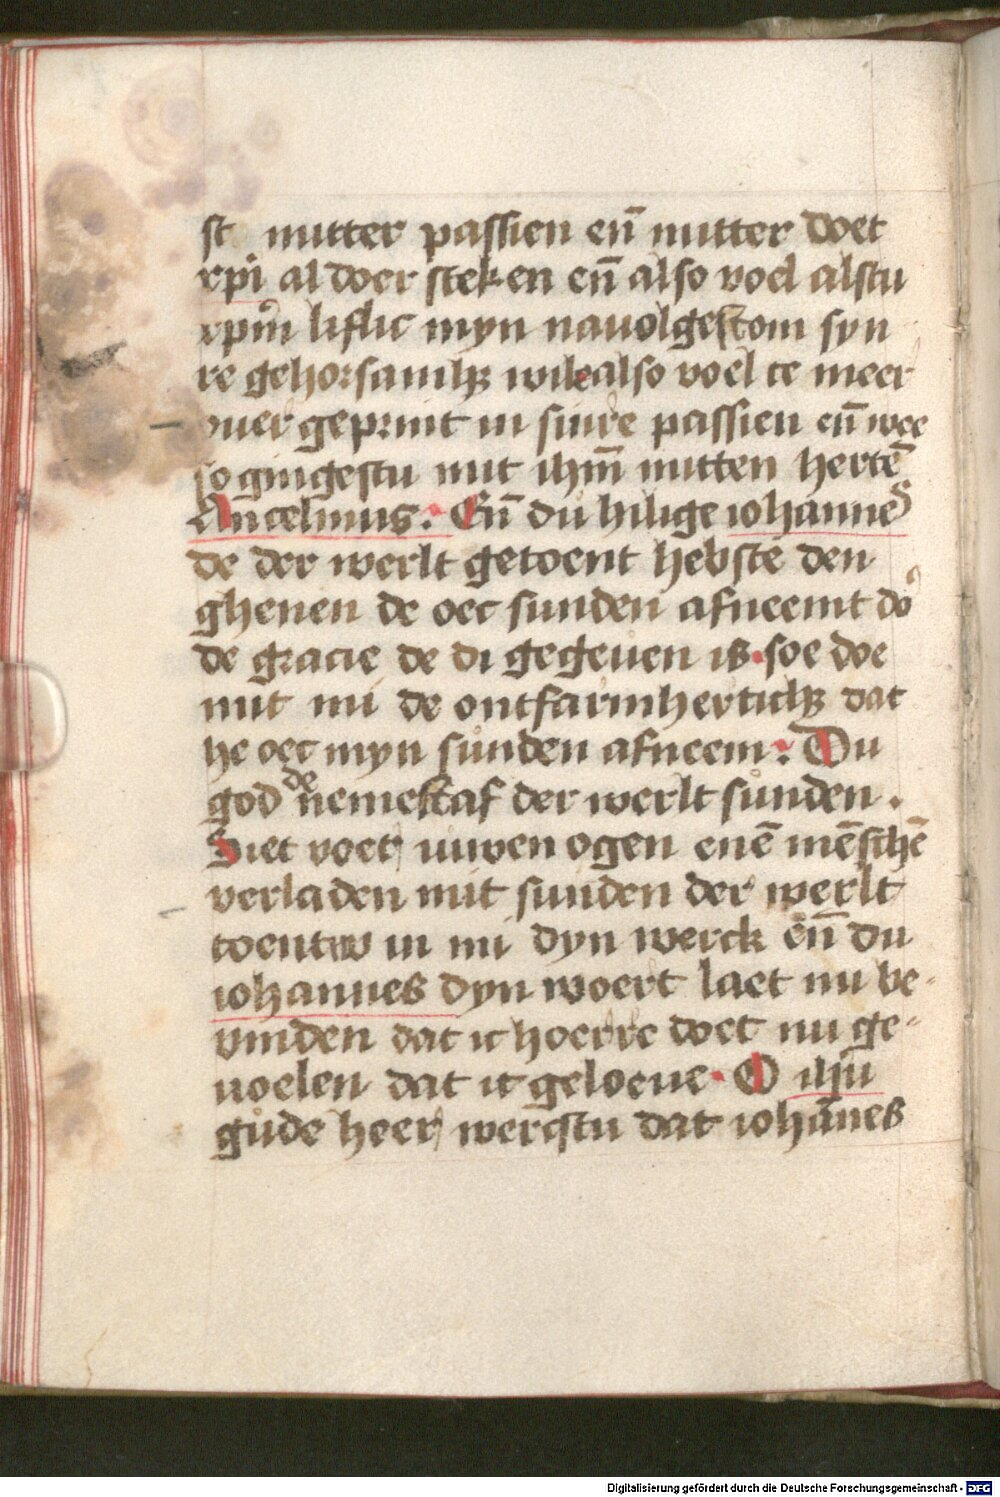 st mitter passien en̄ mitter doet
xpi al doer steken en̄ also voel alstu
xpm̄ liflic myn navolgestom syn
re gehorsamhꝫ wile also voel te meer
geprint in sinre passien en̄ wee
so gingestu mit ihm̄ mitten hertē
Ancelmus: En̄ du hilige iohannes
de der werlt getoent hebste den
ghenen de oec sunden afneemt do
de gracie de di gegeuen is. soe doe
mit mi de ontfarmherticḣꝫ dat
he oec myn sůnden afneem: Du
god de nemest af der werlt sůnden.
Siet voer uwen ogen enē mēschē
verladen mit sunden der werlt
toent in mi dyn werck en̄ du
iohannes dyn woert laet mi be-
vinden dat ic hoerre doet mi ge-
uoelen dat ic geloeue. O ihu
gůde heer wercstu dat iohānes
Digitalisierung gefördert durch die Deutsche Forschungsgemeinschaft - DFG